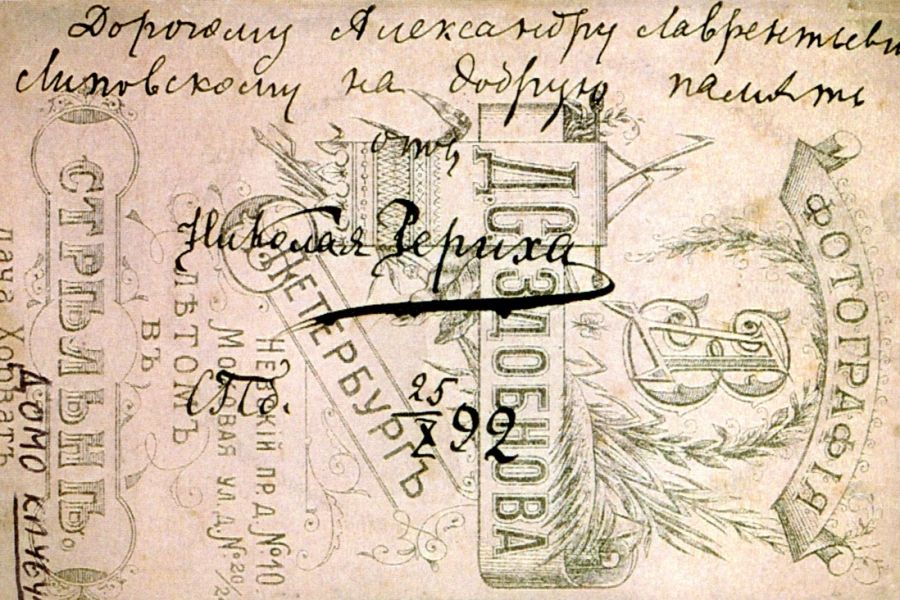 Дорогому Александру Лаврентьеви
Липовскому на добрую память
отъ
Николая Рериха
СПб. 25/X 92
ФОТОГРАФІЯ
Д.С.ЗДОБНОВА
С.ПЕТЕРБУРГЪ
НЕВСКІЙ ПР. Д. №10.
УЛ. Д. №20/2
ЛѢТОМЪ
ВЪ
СТРѢЛЬНѢ.
Дача Хорватъ